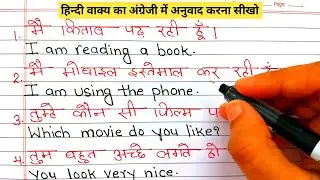 हिन्दी वाक्य का अंग्रेजी में अनुवाद करना सीखो
1. मैं किताब पढ़ रही हूँ।
I am reading a book.
2. मैं मोबाइल इस्तेमाल कर रही
I am using the phone.
3. तुम्हे कौन सी फिल्म
Which movie do you like?
4. तुम बहुत अच्छे लगते हो
You look very nice.